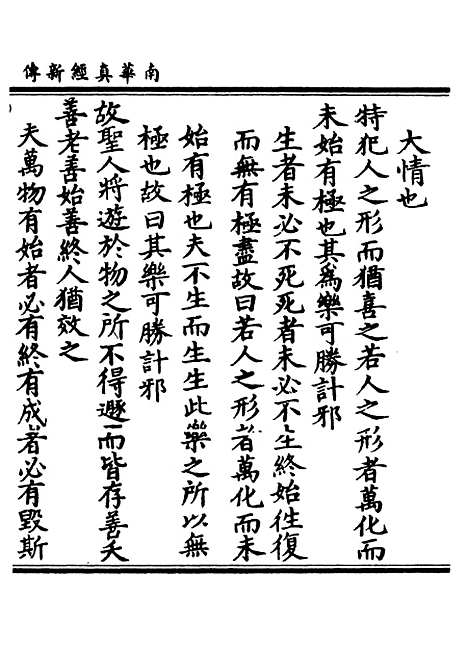 南華真經新傳
大情也
特犯人之形而猶喜之若人之形者萬化而
未始有極也其爲樂可勝計邪
生者未必不死死者未必不生終始往復
而無有極盡故曰若人之形者萬化而未
始有極也夫不生而生生此樂之所以無
極也故曰其樂可勝計邪
故聖人將遊於物之所不得遯而皆存善夭
善老善始善終人猶效之
夫萬物有始者必有終有成者必有毀斯